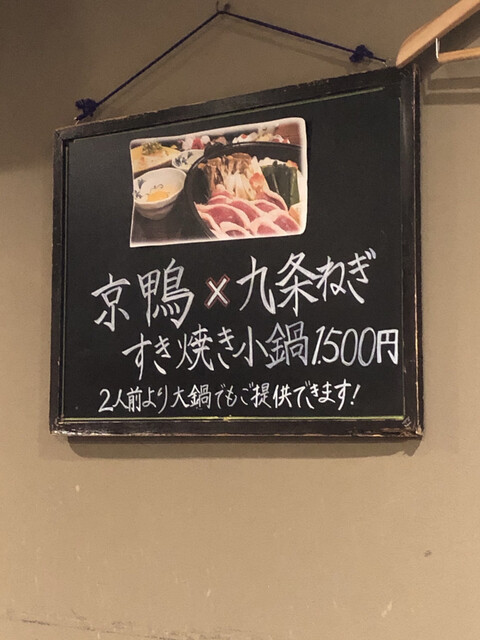 京鴨×九条ねぎ
すき焼き小鍋1,500円
2人前より大鍋でもご提供できます!